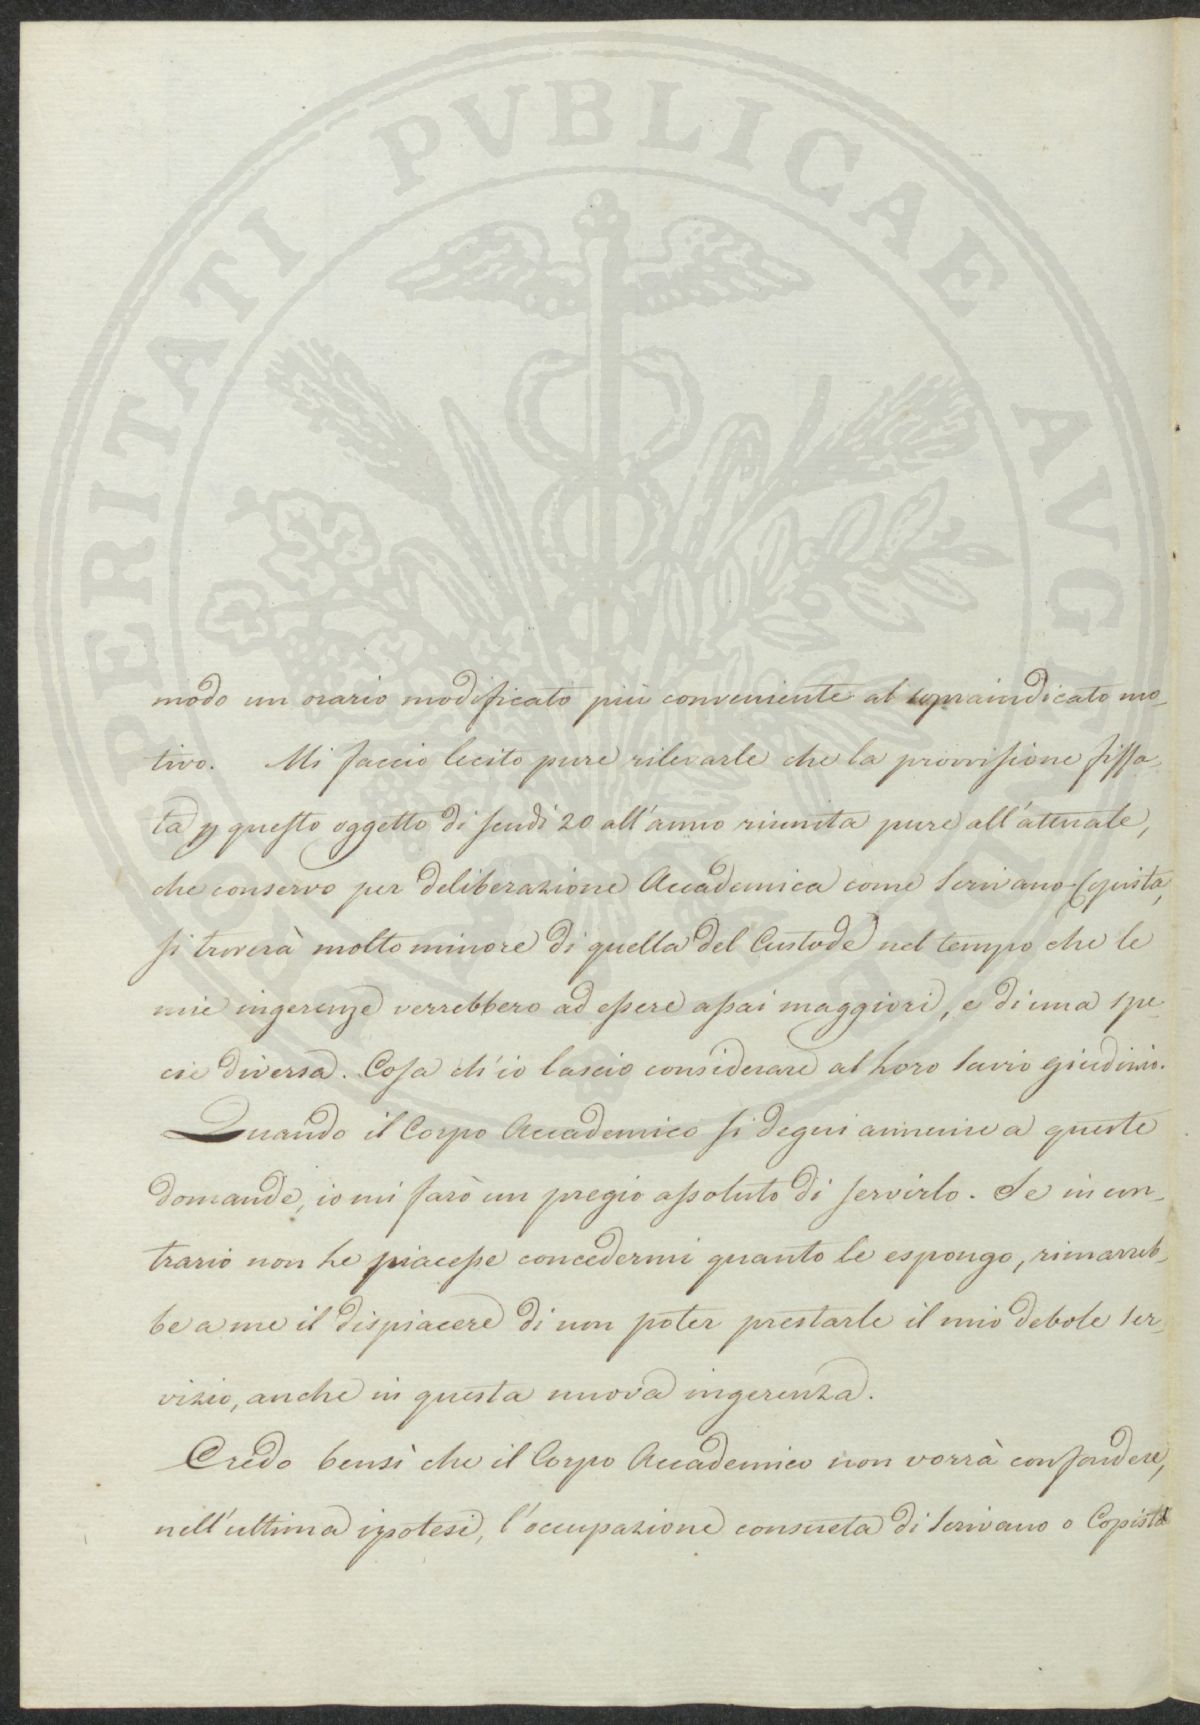 PROSPERITATI PVBLICAE AVGENDAE
modo un orario modificato più conveniente al sopraindicato mo-
tivo. Mi faccio lecito pure rilevarle che la provvisione fissa-
ta p questo oggetto di scudi 20 all'anno riunita pure all'attuale,
che conservo per deliberazione Accademica come Scrivano-Copista,
si troverà molto minore di quella del Custode nel tempo che le
mie ingerenze verrebbero ad essere assai maggiori, e di una spe-
cie diversa. Cosa ch'io lascio considerare al Loro savio giudizio.
Quando il Corpo Accademico si degni annuire a queste
domande, io mi farò un pregio assoluto di servirlo. Se in con-
trario non Le piacesse concedermi quanto le espongo, rimarreb-
be a me il dispiacere di non poter prestarle il mio debole ser-
vizio, anche in questa nuova ingerenza.
Credo bensì che il Corpo Accademico non vorrà confondere,
nell'ultima ipotesi, l'occupazione consueta di Scrivano o Copista